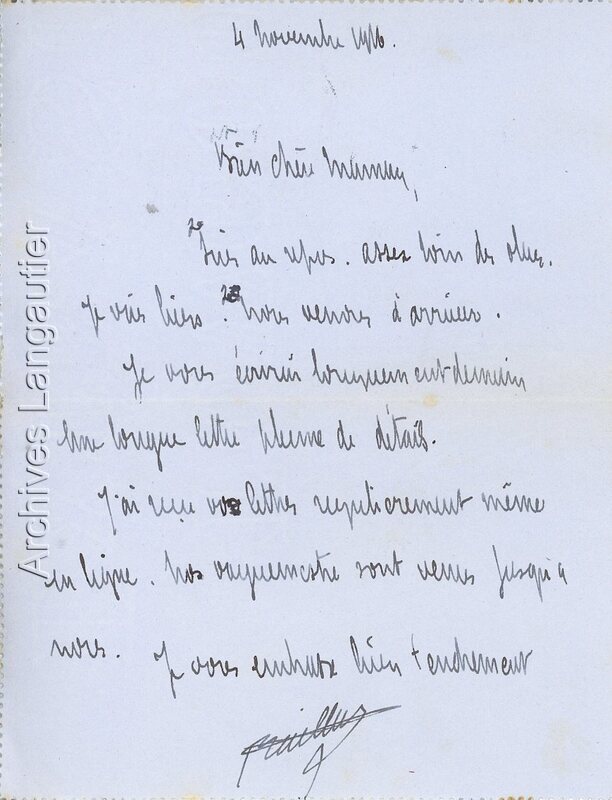 4 Novembre 1916.
Bien chère Maman,
Suis au repos. assez loin des obus.
Je vais bien. Nous venons d'arriver.
Je vous écrirai longuement demain
Une longue lettre pleine de détails.
J'ai reçu vos lettres regulierement même
en ligne. Nos vaguemestre sont venus jusqu'a
nous. Je vous embrasse bien tendrement
Archives Langautier